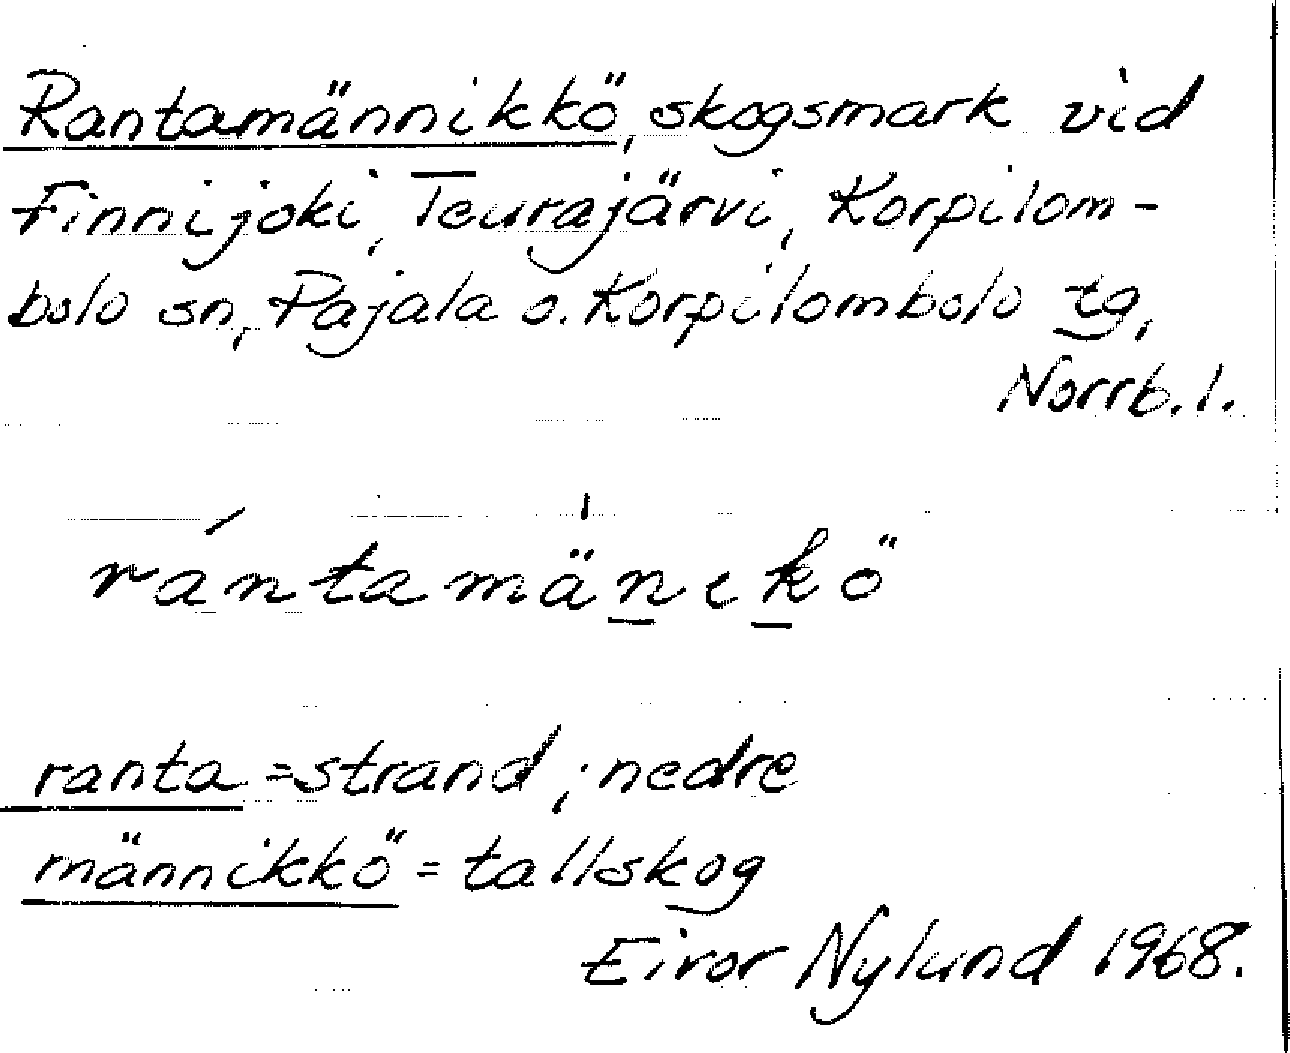 Rantamännikkö, skogsmark vid
Finnijoki, Teurajärvi, Korpilom-
bolo sn, Pajala o. Korpilombolo tg,
Norrb. l.
rantamänikö
ranta = strand; nedre
männikkö = tallskog
Eivor Nylund 1968.